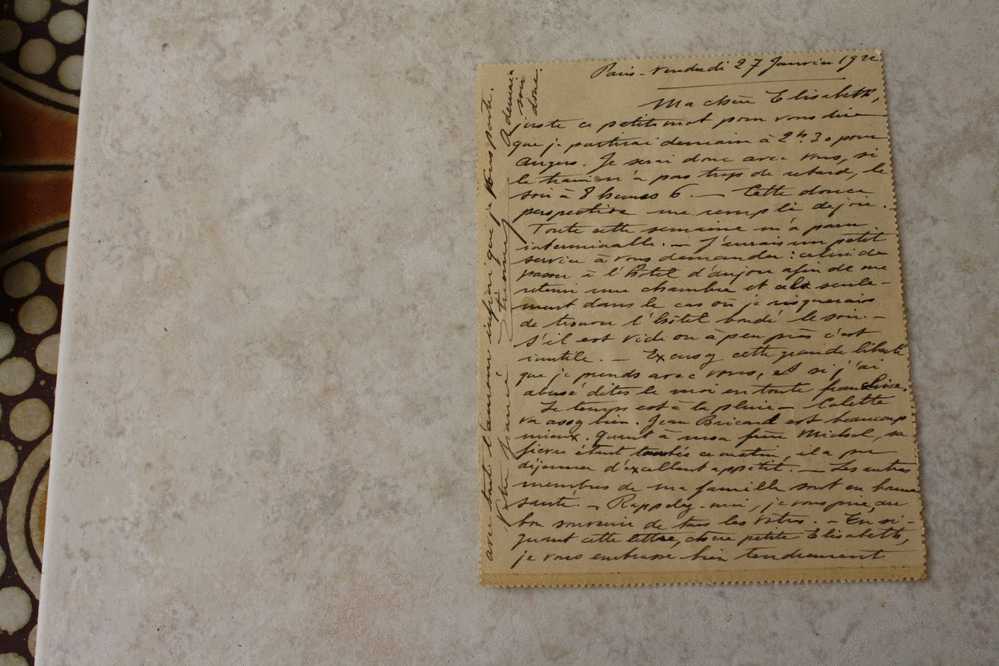 Paris - Vendredi 27 Janvier 1922
Ma chère Elisabeth,
juste ce petit mot pour vous dire
que je partirai demain à 2h30 pour
Angers. Je serai donc avec vous, si
le train n'a pas trop de retard, le
soir à 8 heures 6. — Cette douce
perspective me remplit de joie.
Toute cette semaine m'a paru
interminable. — J'aurais un petit
service à vous demander : celui de
passer à l'Hôtel d'Anjou afin de me
retenir une chambre et cela seule-
ment dans le cas où je risquerais
de trouver l'hôtel bondé le soir —
S'il est vide ou à peu près c'est
inutile. — Excusez cette grande liberté
que je prends avec vous, et si j'ai
abusé dites le moi en toute franchise.
Le temps est à la pluie — Colette
va assez bien. Jean Bricard est beaucoup
mieux. Quant à mon frère Michel, sa
fièvre étant tombée ce matin, il a pu
déjeuner d'excellent appétit. — Les autres
membres de ma famille sont en bonne
santé. — Rappelez-moi, je vous prie, au
bon souvenir de tous les vôtres. — En si-
gnant cette lettre, chère petite Elisabeth,
je vous embrasse bien tendrement
avec tout l'amour infini que je vous porte.
Votre fiancé
A demain
soir
donc.